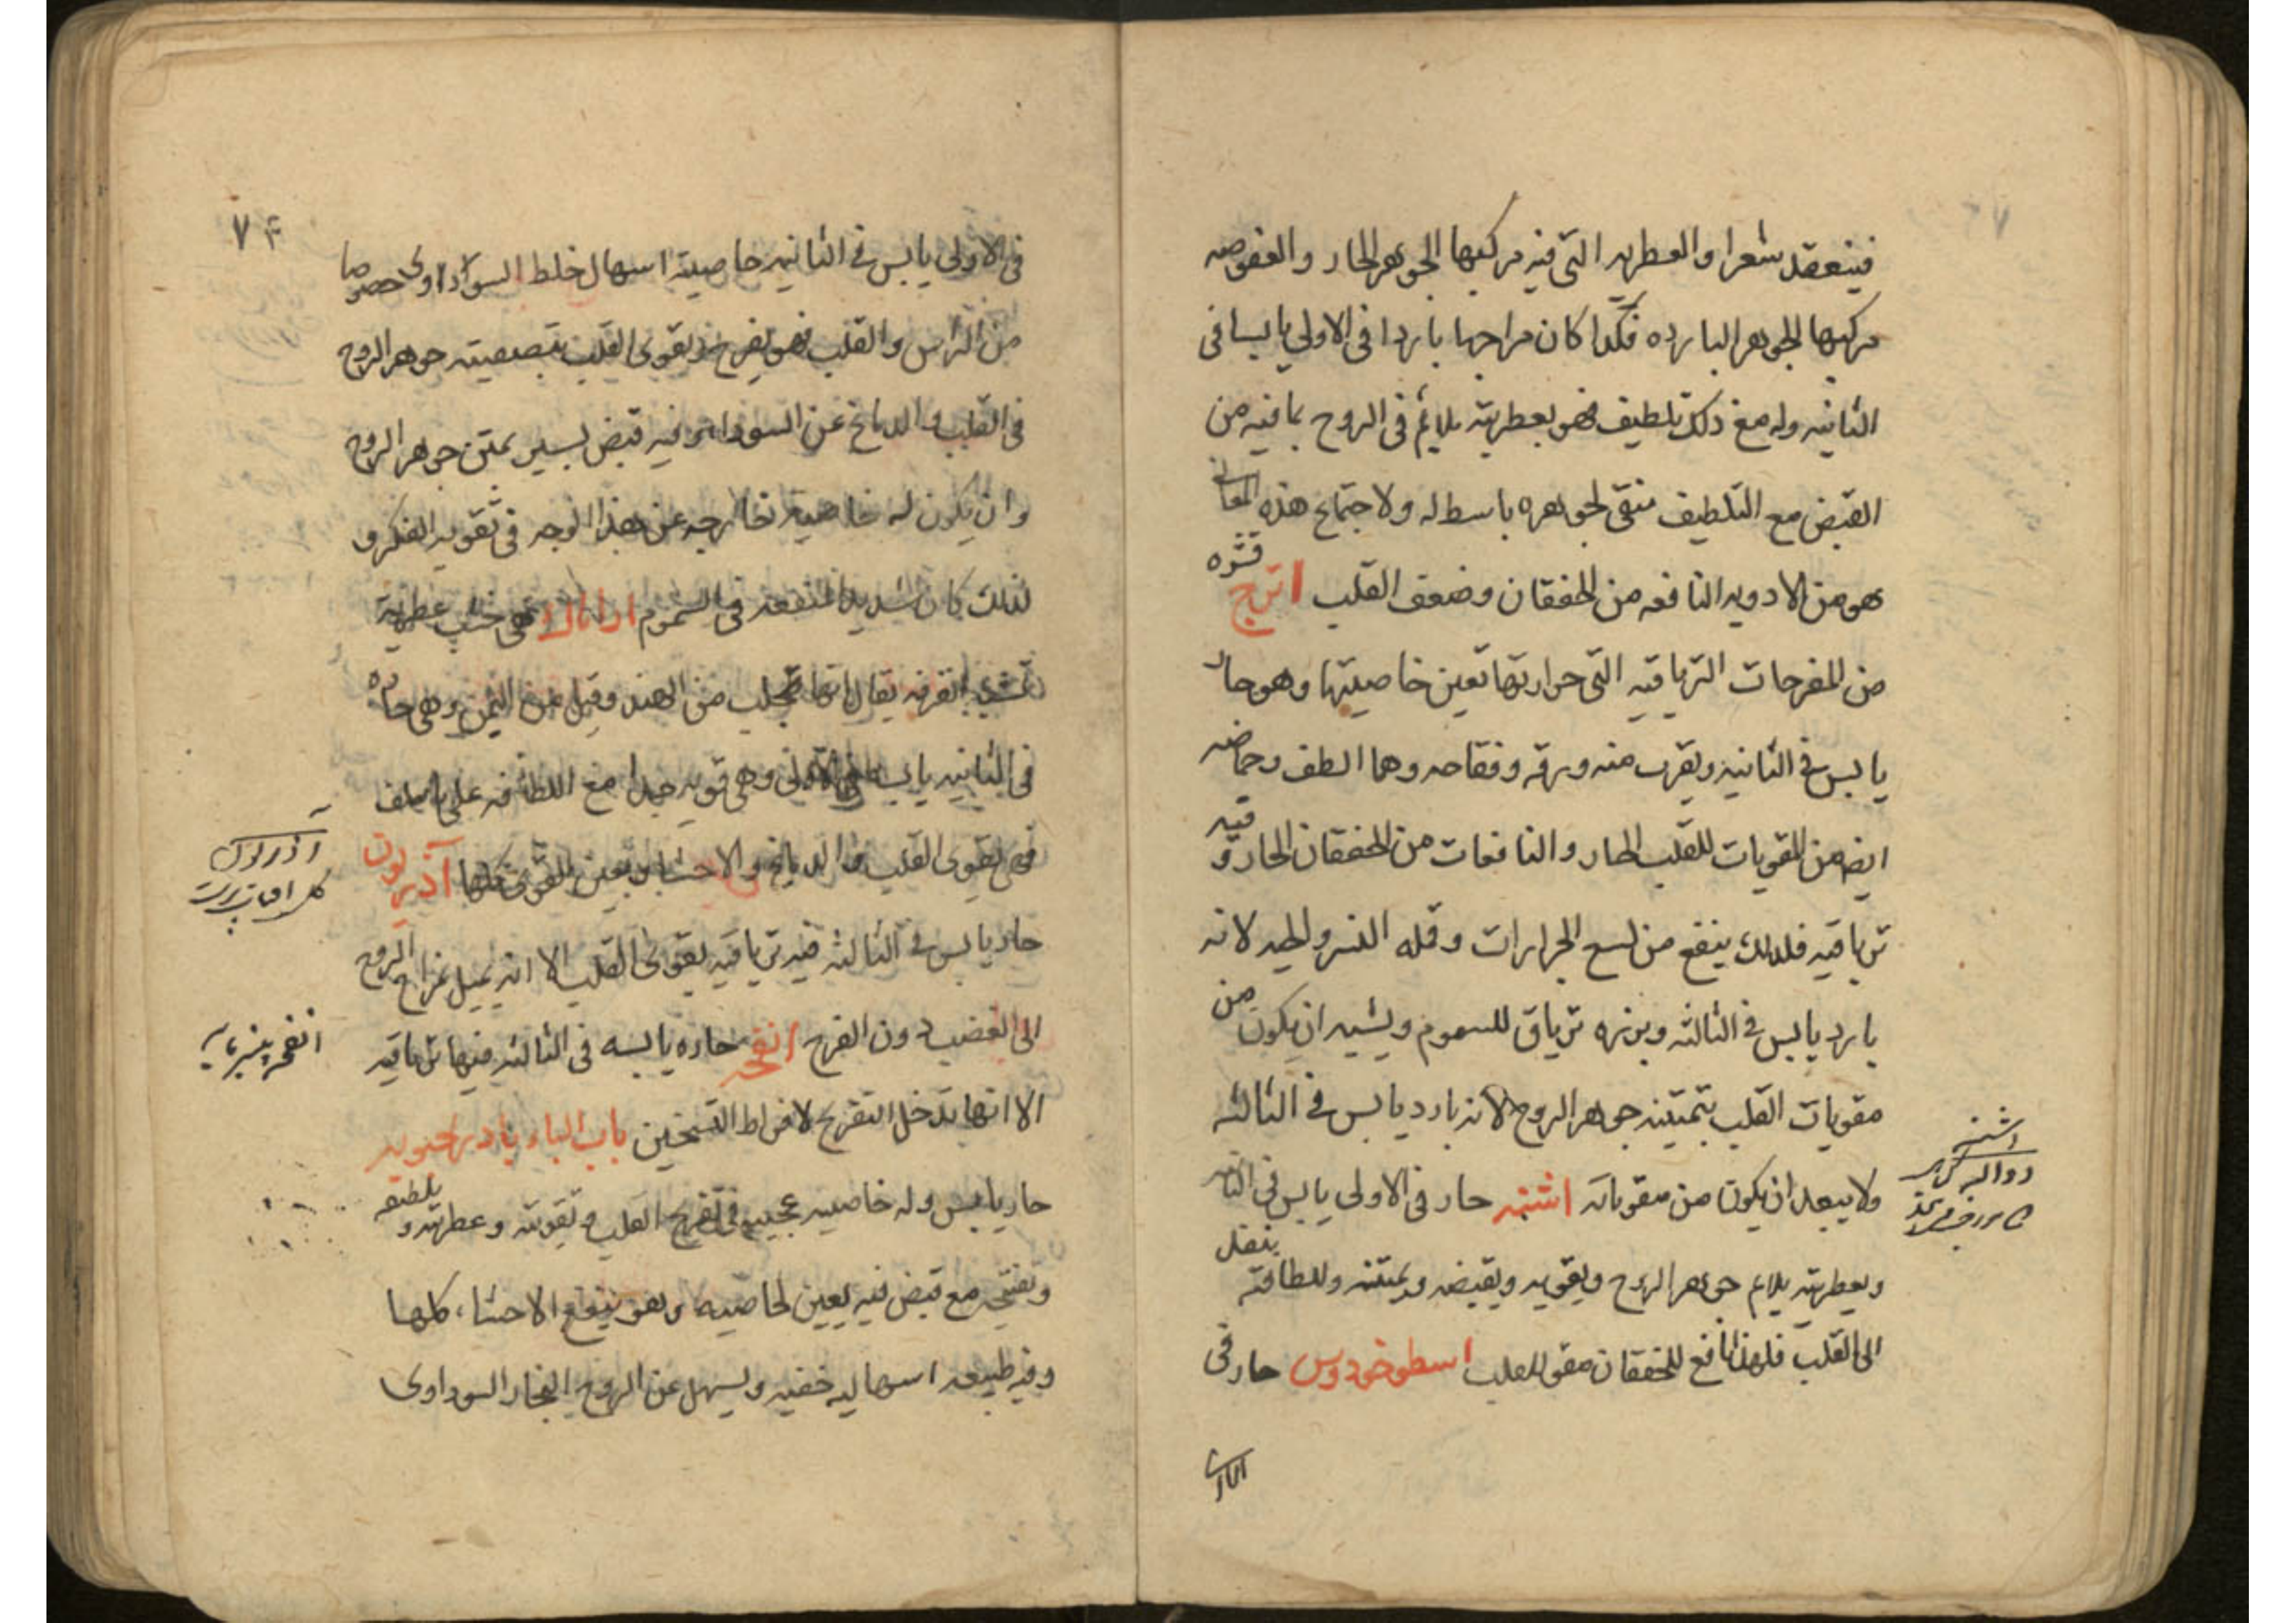 فينعقد شعرا والعطريه التى فيه مركبها الجوهر الحار والعفوصه
مركبها الجوهر البارده فكذا كان مزاجها باردا فى الاولى يابسا فى
الثانيه وله مع ذلك تلطيف فهو بعطريته يلائم فى الروح بما فيه من
القبض مع التلطيف منقى لجوهره باسط له ولاجتماع هذه المعانى
هو من الادويه النافعه من الخفقان وضعف القلب اترج قشره
من المفرحات الترياقيه التى حرارتها تعين خاصيتها وهو حار
يابس فى الثانيه ويقرب منه ورقه وفقاحه وهما الطف وحماضه
ايضا من المقويات للقلب الحار والنافعات من الخفقان الحار وفيه
ترياقيه فلذلك ينفع من لسع الجرارات وقله النسر والحيه لانه
بارد يابس فى الثالثه وبزره ترياق للسموم ويشبه ان يكون من
مقويات القلب بتمتينه جوهر الروح لانه بارد يابس فى الثالثه
ولا يبعد ان يكون من مقوياته اشنه حار فى الاولى يابس فى الثانيه
وبعطريته يلايم جوهر الروح ويقويه وبقبضه ويمتنه وللطافته ينفذ
الى القلب فلهذا نافع للخفقان مقو للقلب اسطوخودوس حار فى
اشنه
فى الاولى يابس فى الثانيه خاصيته اسهال خلط السوداوى خصوصا
من الراس والقلب فهو يفرح ويقوى القلب بتصفيته جوهر الروح
فى القلب والدماغ عن السوداء وفيه قبض يسير يمتن جوهر الروح
وان يكون له خاصيه خارجه عن هذا الوجه فى تقويه الفكر و
لذلك كان شديد المنفعه فى السموم هى خشب عطريه
تشبه القرفه يقال انها تجلب من الهند وقيل من اليمن وهى حاره
فى الثانيه يابسه فى الاولى وهى قويه جدا مع اللطافه على ما سلف
فهى تقوى القلب والدماغ والاحشا وتعين القوى كلها آذريون
حار يابس فى الثالثه فيه ترياقيه يقوى القلب الا انه يميل مزاج الروح
الى الغضب دون الفرح انفحه حاره يابسه فى الثالثه فيها ترياقيه
الا انها تدخل التفريح لافراط التسخين باب الباء بادرنجبويه
حار يابس وله خاصيه عجيبه فى تفريح القلب وتقويته وعطريته و تلطيفه
وتفتيحه مع قبض فيه يعين الخاصيه وهو ينفع الاحشاء كلها
وفيه طبيعه اسهاليه خفيه ويسهل عن الروح البخار السوداوى
۷۴
آذريون
كل افتاب پرست
انفحه پنير مايه